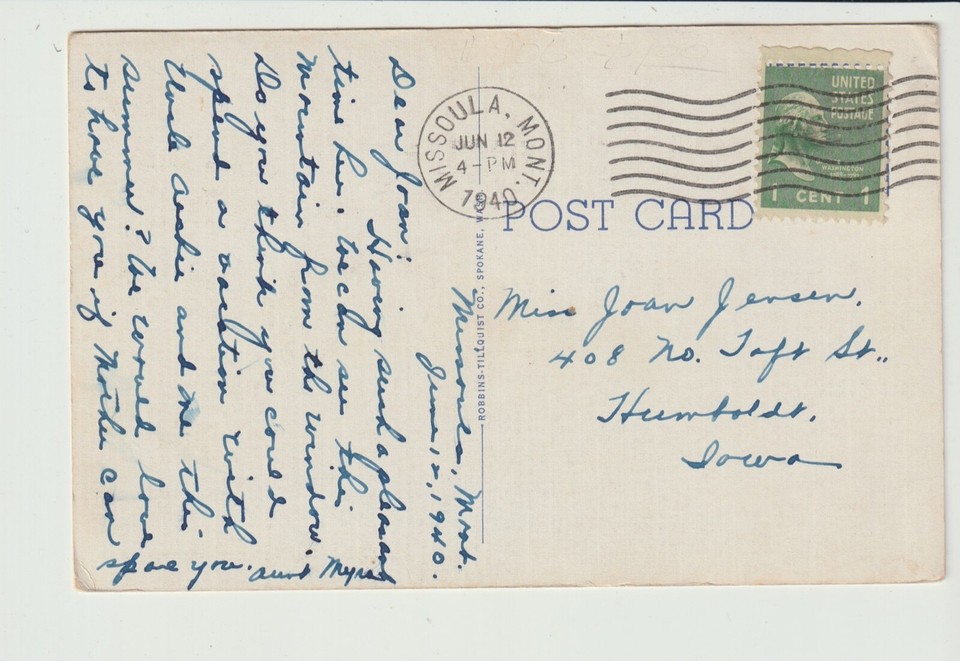 Missoula, Mont.
June 12, 1940.
Dear Joan:
Having such a pleasant
time here. We can see this
Mountain from the window.
Do you think you could
spend a vacation with
Uncle Archie and me this
summer? We would love
to have you if Mother can
spare you. Aunt
MISSOULA, MONT.
JUN 12
4-PM
1940
UNITED
STATES
POSTAGE
WASHINGTON
1 CENT 1
POST CARD
ROBBINS-TILLQUIST CO., SPOKANE, WASH.
Miss Joan Jensen.
408 No. Taft St.,
Humboldt.
Iowa